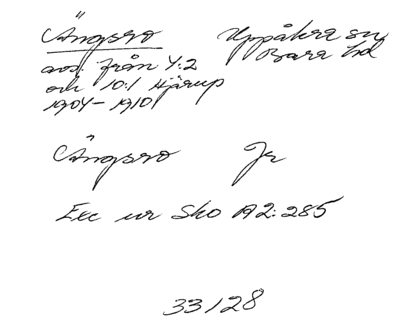 Ängsro Uppåkra sn
avs. från 4:2 Bara hd
och 10:1 Hjärup
1904–1910
Ängsro Jr
Exc ur Sko A2:285
33/28